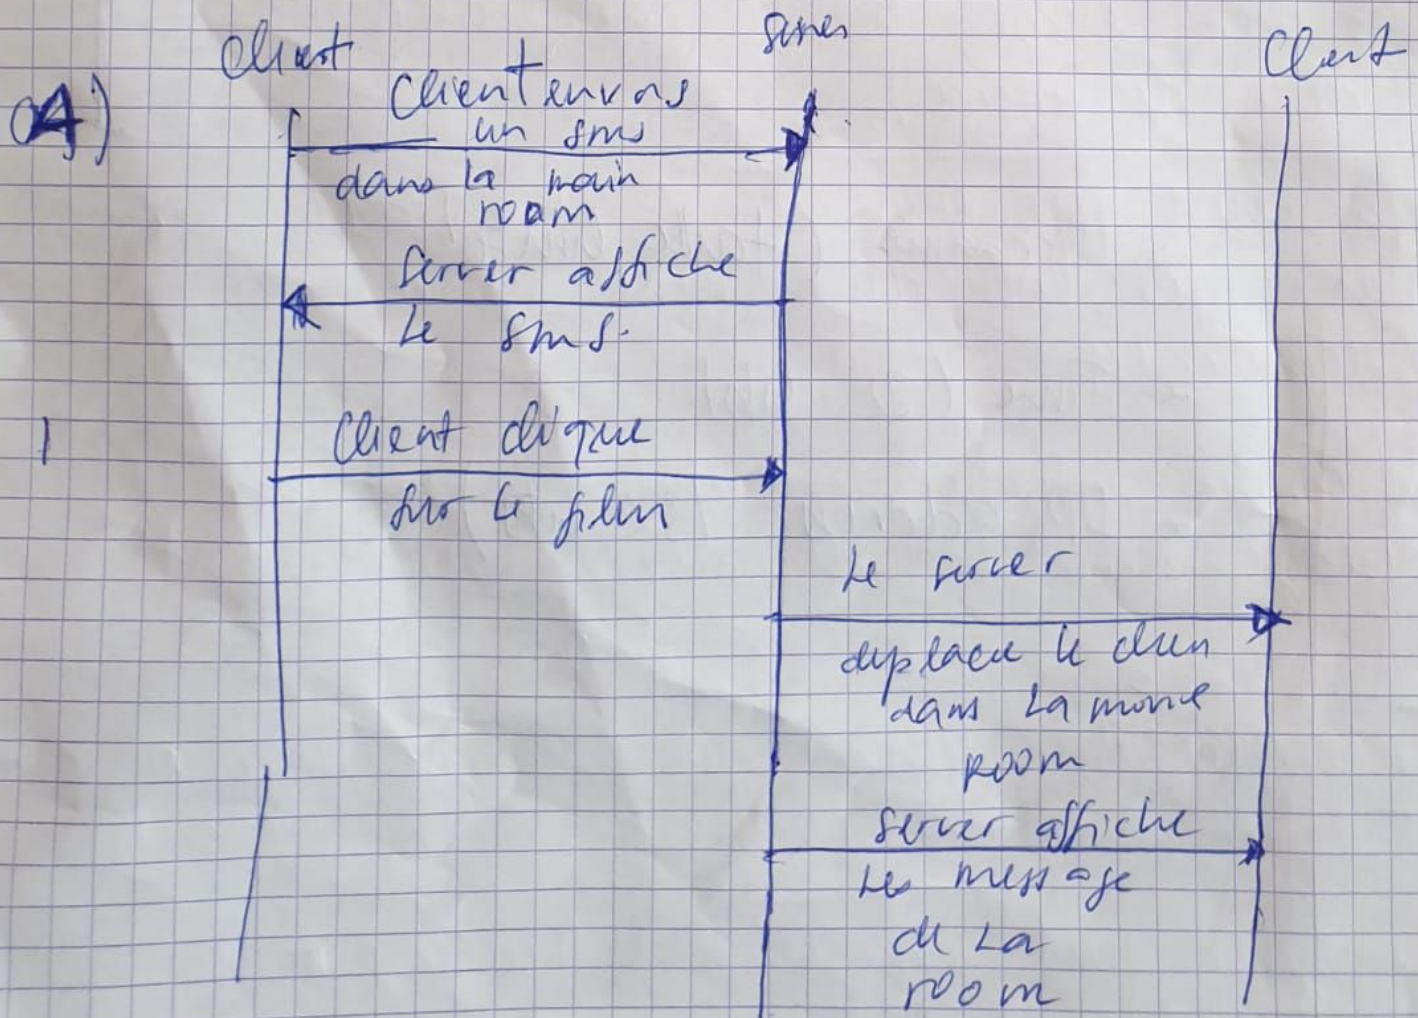 Client
Server
Client
04)
Client envos
un sms
dans la main
room
Server affiche
le sms.
Client clique
sur le plan
le server
deplace le clien
dans la
room
server affiche
les message
de la
room